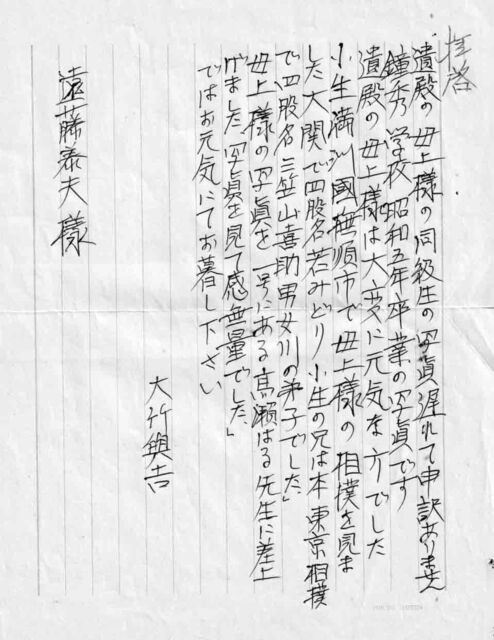 拝啓
遺殿の母上様の同級生の写真遅れて申訳ありません
鐘秀学校昭和五年卒業の写真です
遺殿の母上様は大変に元気な方でした
小生満州國撫順市で母上様の相撲を見ま
した大関で四股名若みどり小生の兄は本東京相撲
で四股名三笠山喜助男女川の弟子でした」
母上様の写真を一号にある高瀬はる先生に差上
げました写真を見て感無量でした」
ではお元気にてお暮し下さい
大竹與吉
遠藤泰夫様